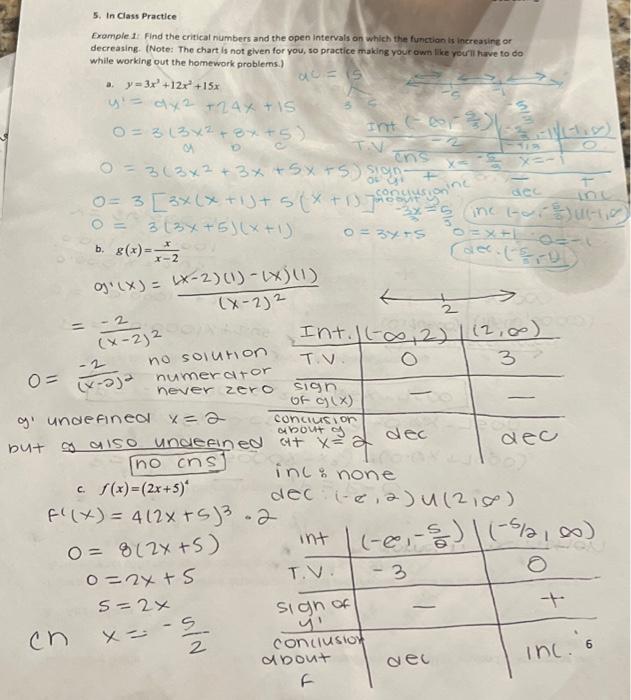 5. In Class Practice
Example 1: Find the critical numbers and the open intervals on which the function is increasing or
decreasing. (Note: The chart is not given for you, so practice making your own like you'll have to do
while working out the homework problems.)
ac = 15
3 5
a. y = 3x³ + 12x² + 15x
y' = 9x2 + 24x + 15
0 = 3(3x² + 8x + 5)
a b c
0 = 3(3x² + 3x + 5x + 5)
0 = 3[3x(x + 1) + 5(x + 1)]
0 = 3(3x + 5)(x + 1)
-5 -1
Int (-∞, -5/3) | -5/3, -1 | (-1, ∞)
T.V. -2 | -4/3 | 0
cns x = -5/3 x = -1
sign of y' + - +
conclusion about y inc dec inc
0 = 3x + 5 0 = x + 1
inc (-∞, -5/3) U (-1, ∞)
dec. (-5/3, -1)
b. g(x) = x/(x-2)
g'(x) = (x-2)(1) - (x)(1) / (x-2)²
2
= -2/(x-2)²
0 = -2/(x-2)² no solution
numerator
never zero
g' undefined x = 2
but g also undefined at x = 2
no cns
Int. | (-∞, 2) | (2, ∞)
T.V. | 0 | 3
sign of g(x) | - | -
conclusion about g | dec | dec
inc: none
dec: (-∞, 2) U (2, ∞)
c. f(x) = (2x+5)⁴
f'(x) = 4(2x+5)³ · 2
0 = 8(2x+5)
0 = 2x + 5
5 = 2x
cn x = -5/2
int | (-∞, -5/2) | (-5/2, ∞)
T.V. | -3 | 0
sign of y' | - | +
conclusion about f | dec | inc.
6